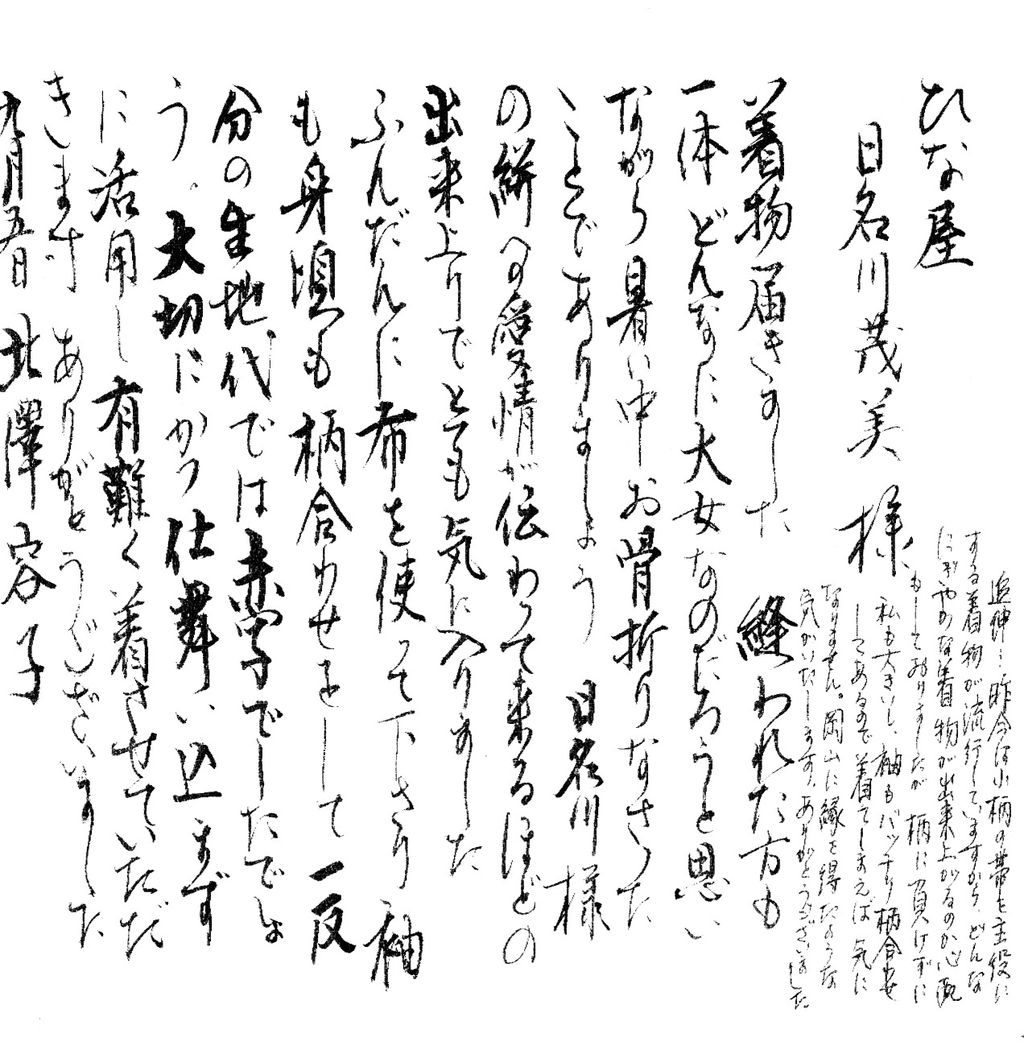 ひな屋
日名川茂美 様
着物届きました 縫われた方も
一体どんなに大女なのだろうと思い
ながら暑い中お骨折りなさった
ことでありましょう 日名川様
の絣への愛情が伝わって来るほどの
出来上りでとても気に入りました
ふんだんに布を使って下さり 袖
も身頃も柄合わせをして一反
分の生地代では赤字でしたでしょ
う。大切にかつ仕舞い込まず
に活用し有難く着させていただ
きます ありがとうございました
九月五日 北澤容子
追伸:昨今は小柄の帯を主役に
する着物が流行していますから、どんな
にぎやかな着物が出来上がるのか心配
もしておりましたが 柄に負けずに
私も大きいし、袖もバッチリ柄合せ
してあるので着てしまえば気に
なりません。岡山に縁を得たような
気がいたします。ありがとうございました